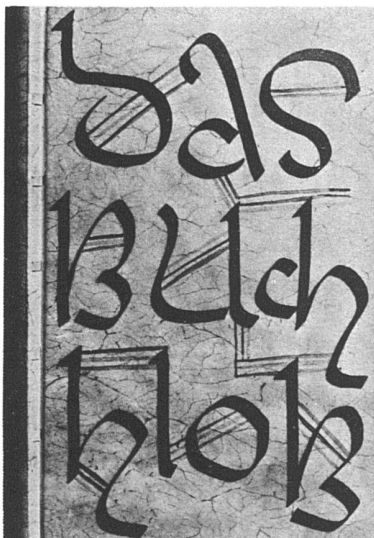 Das
Buch
hiob